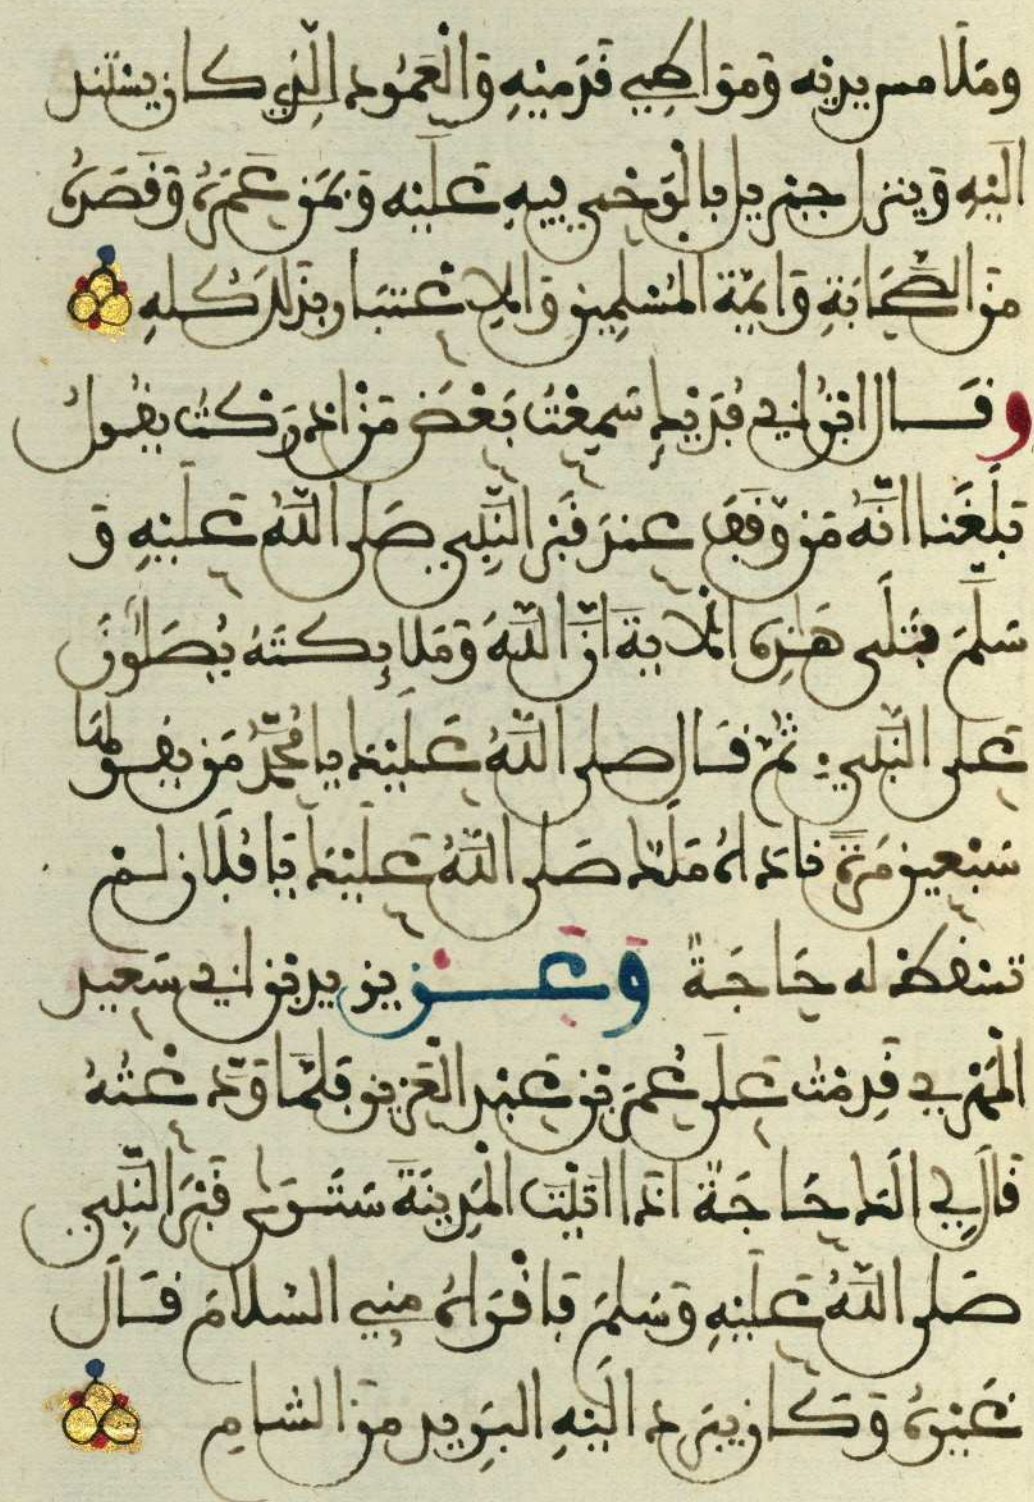 وملامس يديه ومواطئ قدميه والعمود الذي كان يستند
اليه وينزل جبريل بالوحي فيه عليه وبمن عمره وقصده
من الصحابة وايمة المسلمين والاعتبار بذلك كله
وقال ابن ابي فديك سمعت بعض من ادركت يقول
بلغنا انه من وقف عند قبر النبي صلى الله عليه و
سلم فتلى هذه الاية ان الله وملايكته يصلون
على النبي ثم قال صلى الله عليك يا محمد من يقولها
سبعين مرة ناداه ملك صلى الله عليك يا فلان لم
تسقط له حاجة وعن يزيد بن ابي سعيد
المهري قدمت على عمر بن عبد العزيز فلما ودعته
قال لي اليك حاجة اذا اتيت المدينة سترى قبر النبي
صلى الله عليه وسلم فاقراه مني السلام قال
غيره وكان يبرد اليه البريد من الشام